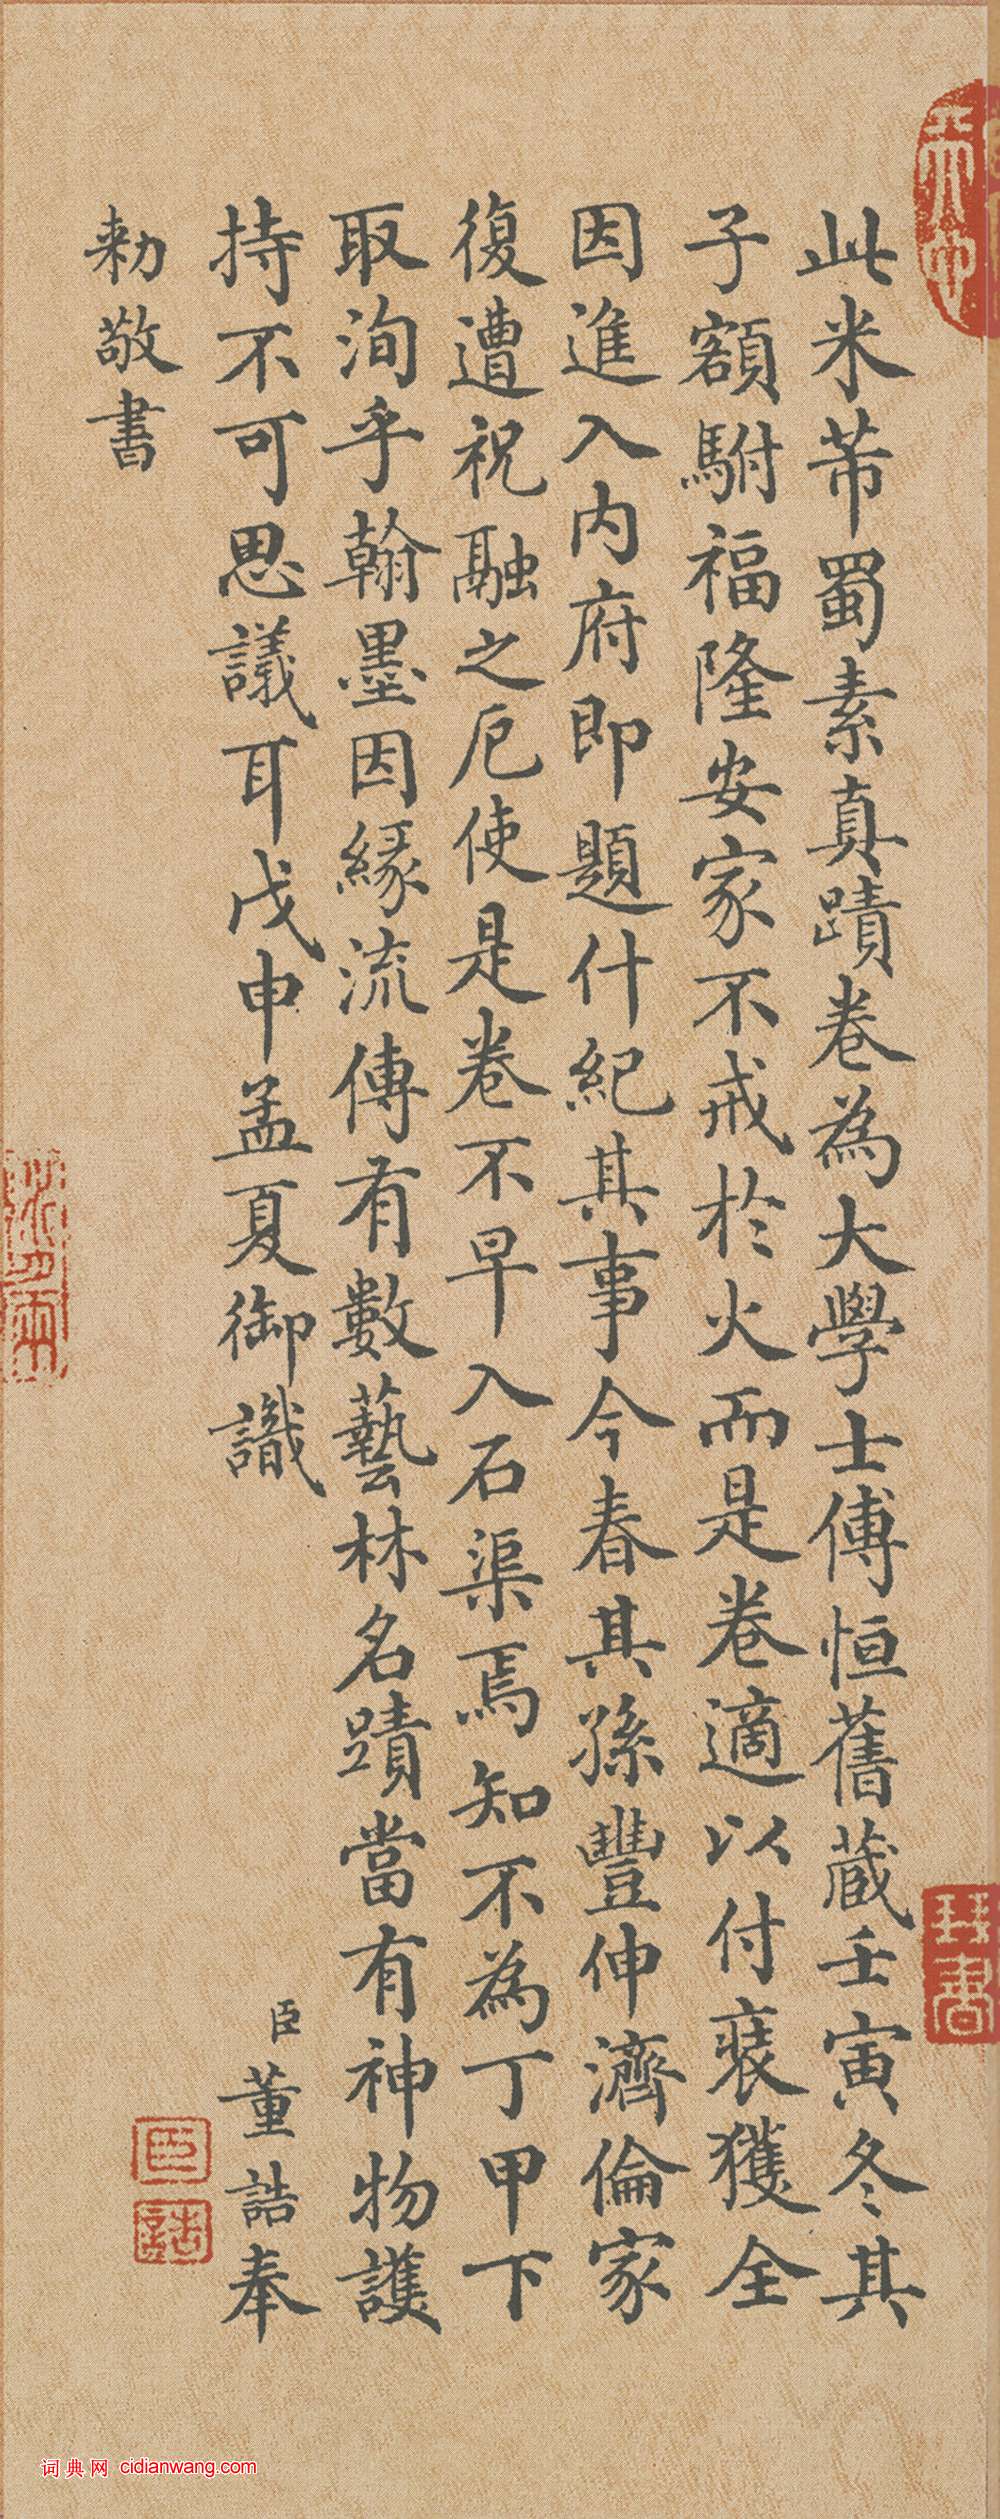 此米芾蜀素真蹟卷為大學士傅恒舊藏壬寅冬其
子額駙福隆安家不戒於火而是卷適以付裝獲全
因進入內府即題什紀其事今春其孫豐伸濟倫家
復遭祝融之厄使是卷不早入石渠焉知不為丁甲下
取洵乎翰墨因緣流傳有數藝林名蹟當有神物護
持不可思議耳戊申孟夏御識
臣董誥奉
勅敬書
臣
誥
琴書
词典网 cidianwang.com